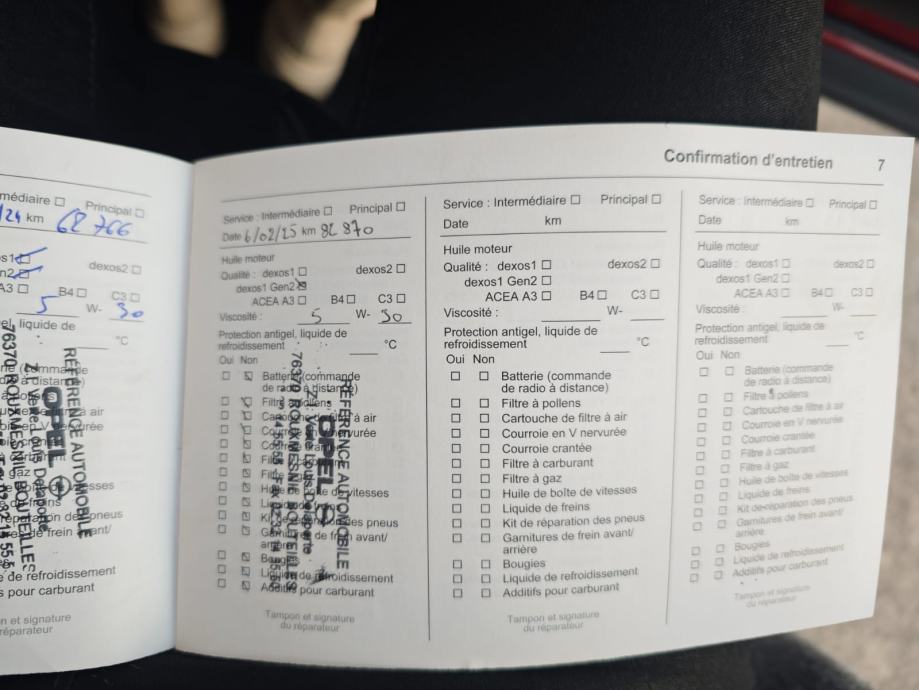 Confirmation d'entretien 7
médiaire ☐ Principal ☐
/24 km 62 766
dexos2 ☐
A3 ☐ B4 ☐ C3 ☐
5 W- 30
el, liquide de
°C
RÉFÉRENCE AUTOMOBILE
OPEL
76370 ROUXMESNIL BOUTEILLES
de refroidissement
s pour carburant
Tampon et signature
du réparateur
Service : Intermédiaire ☐ Principal ☐
Date 6/02/25 km 82 870
Huile moteur
Qualité : dexos1 ☐ dexos2 ☐
dexos1 Gen2 ☒
ACEA A3 ☐ B4 ☐ C3 ☐
Viscosité : 5 W- 30
Protection antigel, liquide de
refroidissement °C
Oui Non
☐ ☒ Batterie (commande
de radio à distance)
☐ ☒ Filtre à pollens
☐ ☒ Cartouche de filtre à air
☐ ☒ Courroie en V nervurée
☐ ☒ Courroie crantée
☐ ☒ Filtre à carburant
☐ ☒ Filtre à gaz
☐ ☒ Huile de boîte de vitesses
☐ ☒ Liquide de freins
☐ ☒ Kit de réparation des pneus
☐ ☒ Garnitures de frein avant/
arrière
☐ ☒ Bougies
☐ ☒ Liquide de refroidissement
☐ ☒ Additifs pour carburant
RÉFÉRENCE AUTOMOBILE
OPEL
76370 ROUXMESNIL BOUTEILLES
Tampon et signature
du réparateur
Service : Intermédiaire ☐ Principal ☐
Date km
Huile moteur
Qualité : dexos1 ☐ dexos2 ☐
dexos1 Gen2 ☐
ACEA A3 ☐ B4 ☐ C3 ☐
Viscosité : W-
Protection antigel, liquide de
refroidissement °C
Oui Non
☐ ☐ Batterie (commande
de radio à distance)
☐ ☐ Filtre à pollens
☐ ☐ Cartouche de filtre à air
☐ ☐ Courroie en V nervurée
☐ ☐ Courroie crantée
☐ ☐ Filtre à carburant
☐ ☐ Filtre à gaz
☐ ☐ Huile de boîte de vitesses
☐ ☐ Liquide de freins
☐ ☐ Kit de réparation des pneus
☐ ☐ Garnitures de frein avant/
arrière
☐ ☐ Bougies
☐ ☐ Liquide de refroidissement
☐ ☐ Additifs pour carburant
Tampon et signature
du réparateur
Service : Intermédiaire ☐ Principal ☐
Date km
Huile moteur
Qualité : dexos1 ☐ dexos2 ☐
dexos1 Gen2 ☐
ACEA A3 ☐ B4 ☐ C3 ☐
Viscosité : W-
Protection antigel, liquide de
refroidissement °C
Oui Non
☐ ☐ Batterie (commande
de radio à distance)
☐ ☐ Filtre à pollens
☐ ☐ Cartouche de filtre à air
☐ ☐ Courroie en V nervurée
☐ ☐ Courroie crantée
☐ ☐ Filtre à carburant
☐ ☐ Filtre à gaz
☐ ☐ Huile de boîte de vitesses
☐ ☐ Liquide de freins
☐ ☐ Kit de réparation des pneus
☐ ☐ Garnitures de frein avant/
arrière
☐ ☐ Bougies
☐ ☐ Liquide de refroidissement
☐ ☐ Additifs pour carburant
Tampon et signature
du réparateur